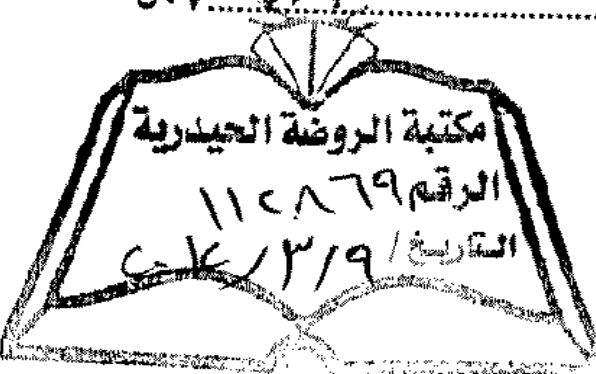 مكتبة الروضة الحيدرية
الرقم ١١٢٨٦٩
التاريخ / ٩ / ٣ /